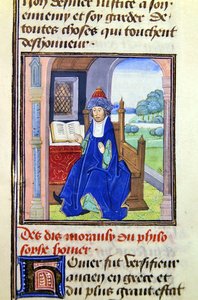 son dernier justice a son
ennemy et soy garder de
toutes choses qui touchent
deshonneur.
Des dis moraulx du philo
sophe homer
Homer fut versifieur
ancien en grece et
du plus grant estat